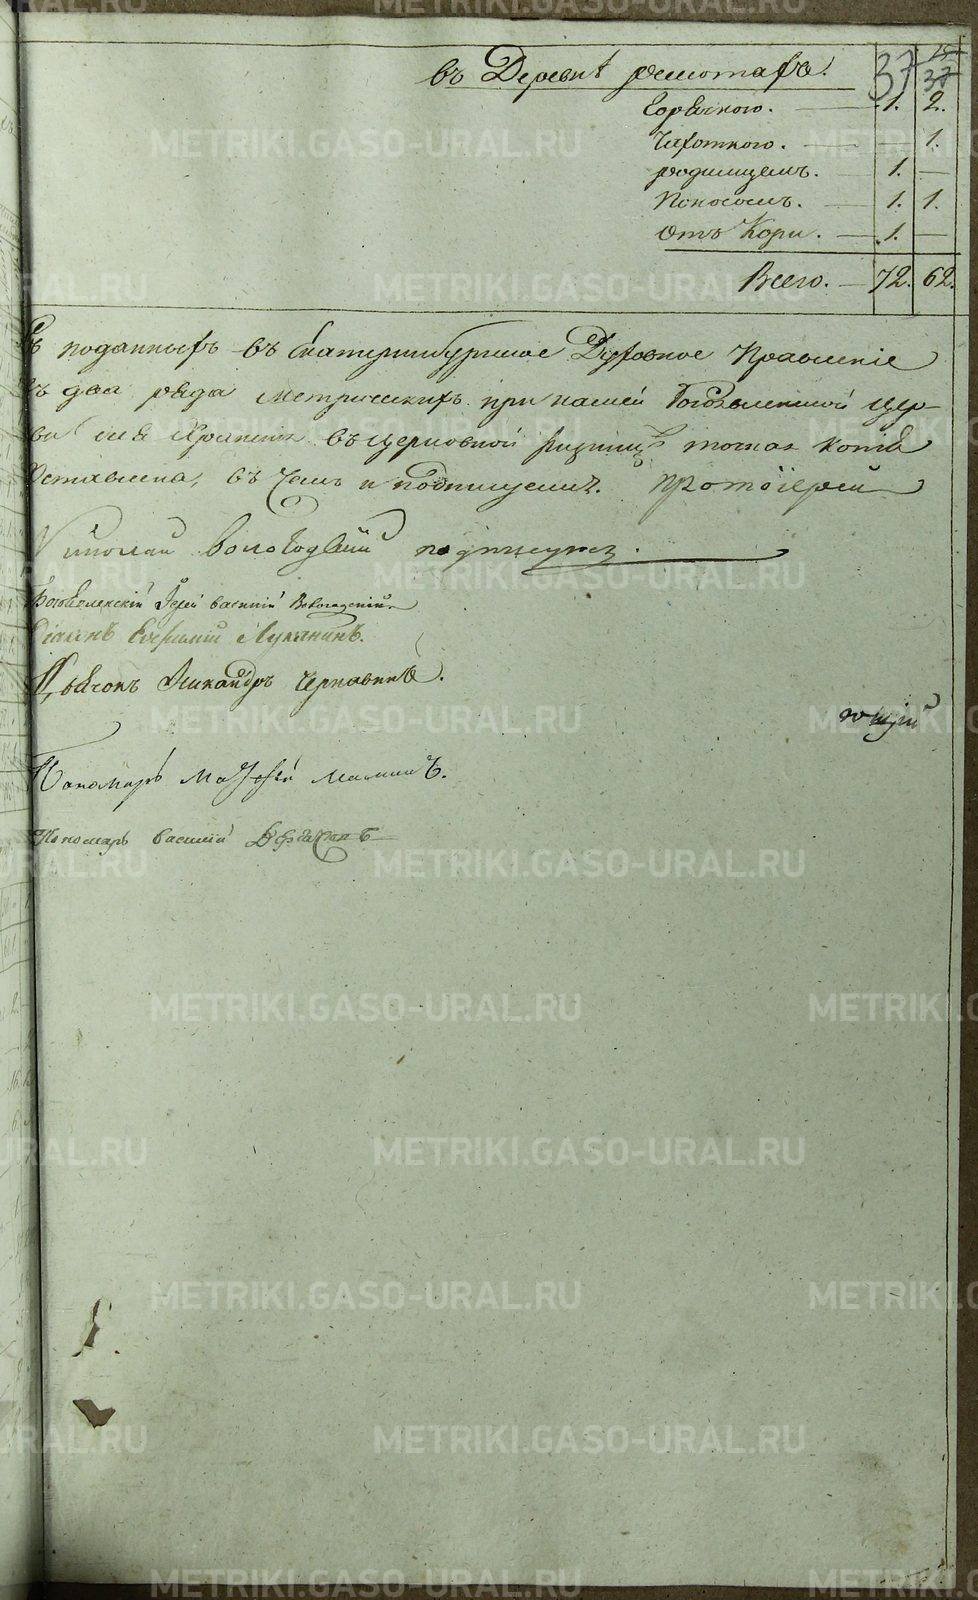 37
37
въ Деревнѣ решотахъ.
Горячкою. 1. 2.
Чахоткою. — 1.
родимцемъ. 1. —
Поносомъ. 1. 1.
Отъ Кори. 1. —
Всего. 72. 62.
Съ поданныхъ въ Екатеринбургское Духовное Правленіе
въ два ряда Метрическихъ при нашей Богоявленской Цер-
кви для Храненія въ церковной ризницѣ точная копія
Оставлена, въ Чемъ и подпишемся. Протоіерей
Николай Вологодский подписуюсь.
Богоявленскій Іерей Василий Вологодский
Діаконъ Евфимий Лукянинъ.
Дьячокъ Никандръ Чернавинъ.
ющій
Пономарь Матфей Малинъ.
Пономарь Василий
METRIKI.GASO-URAL.RU